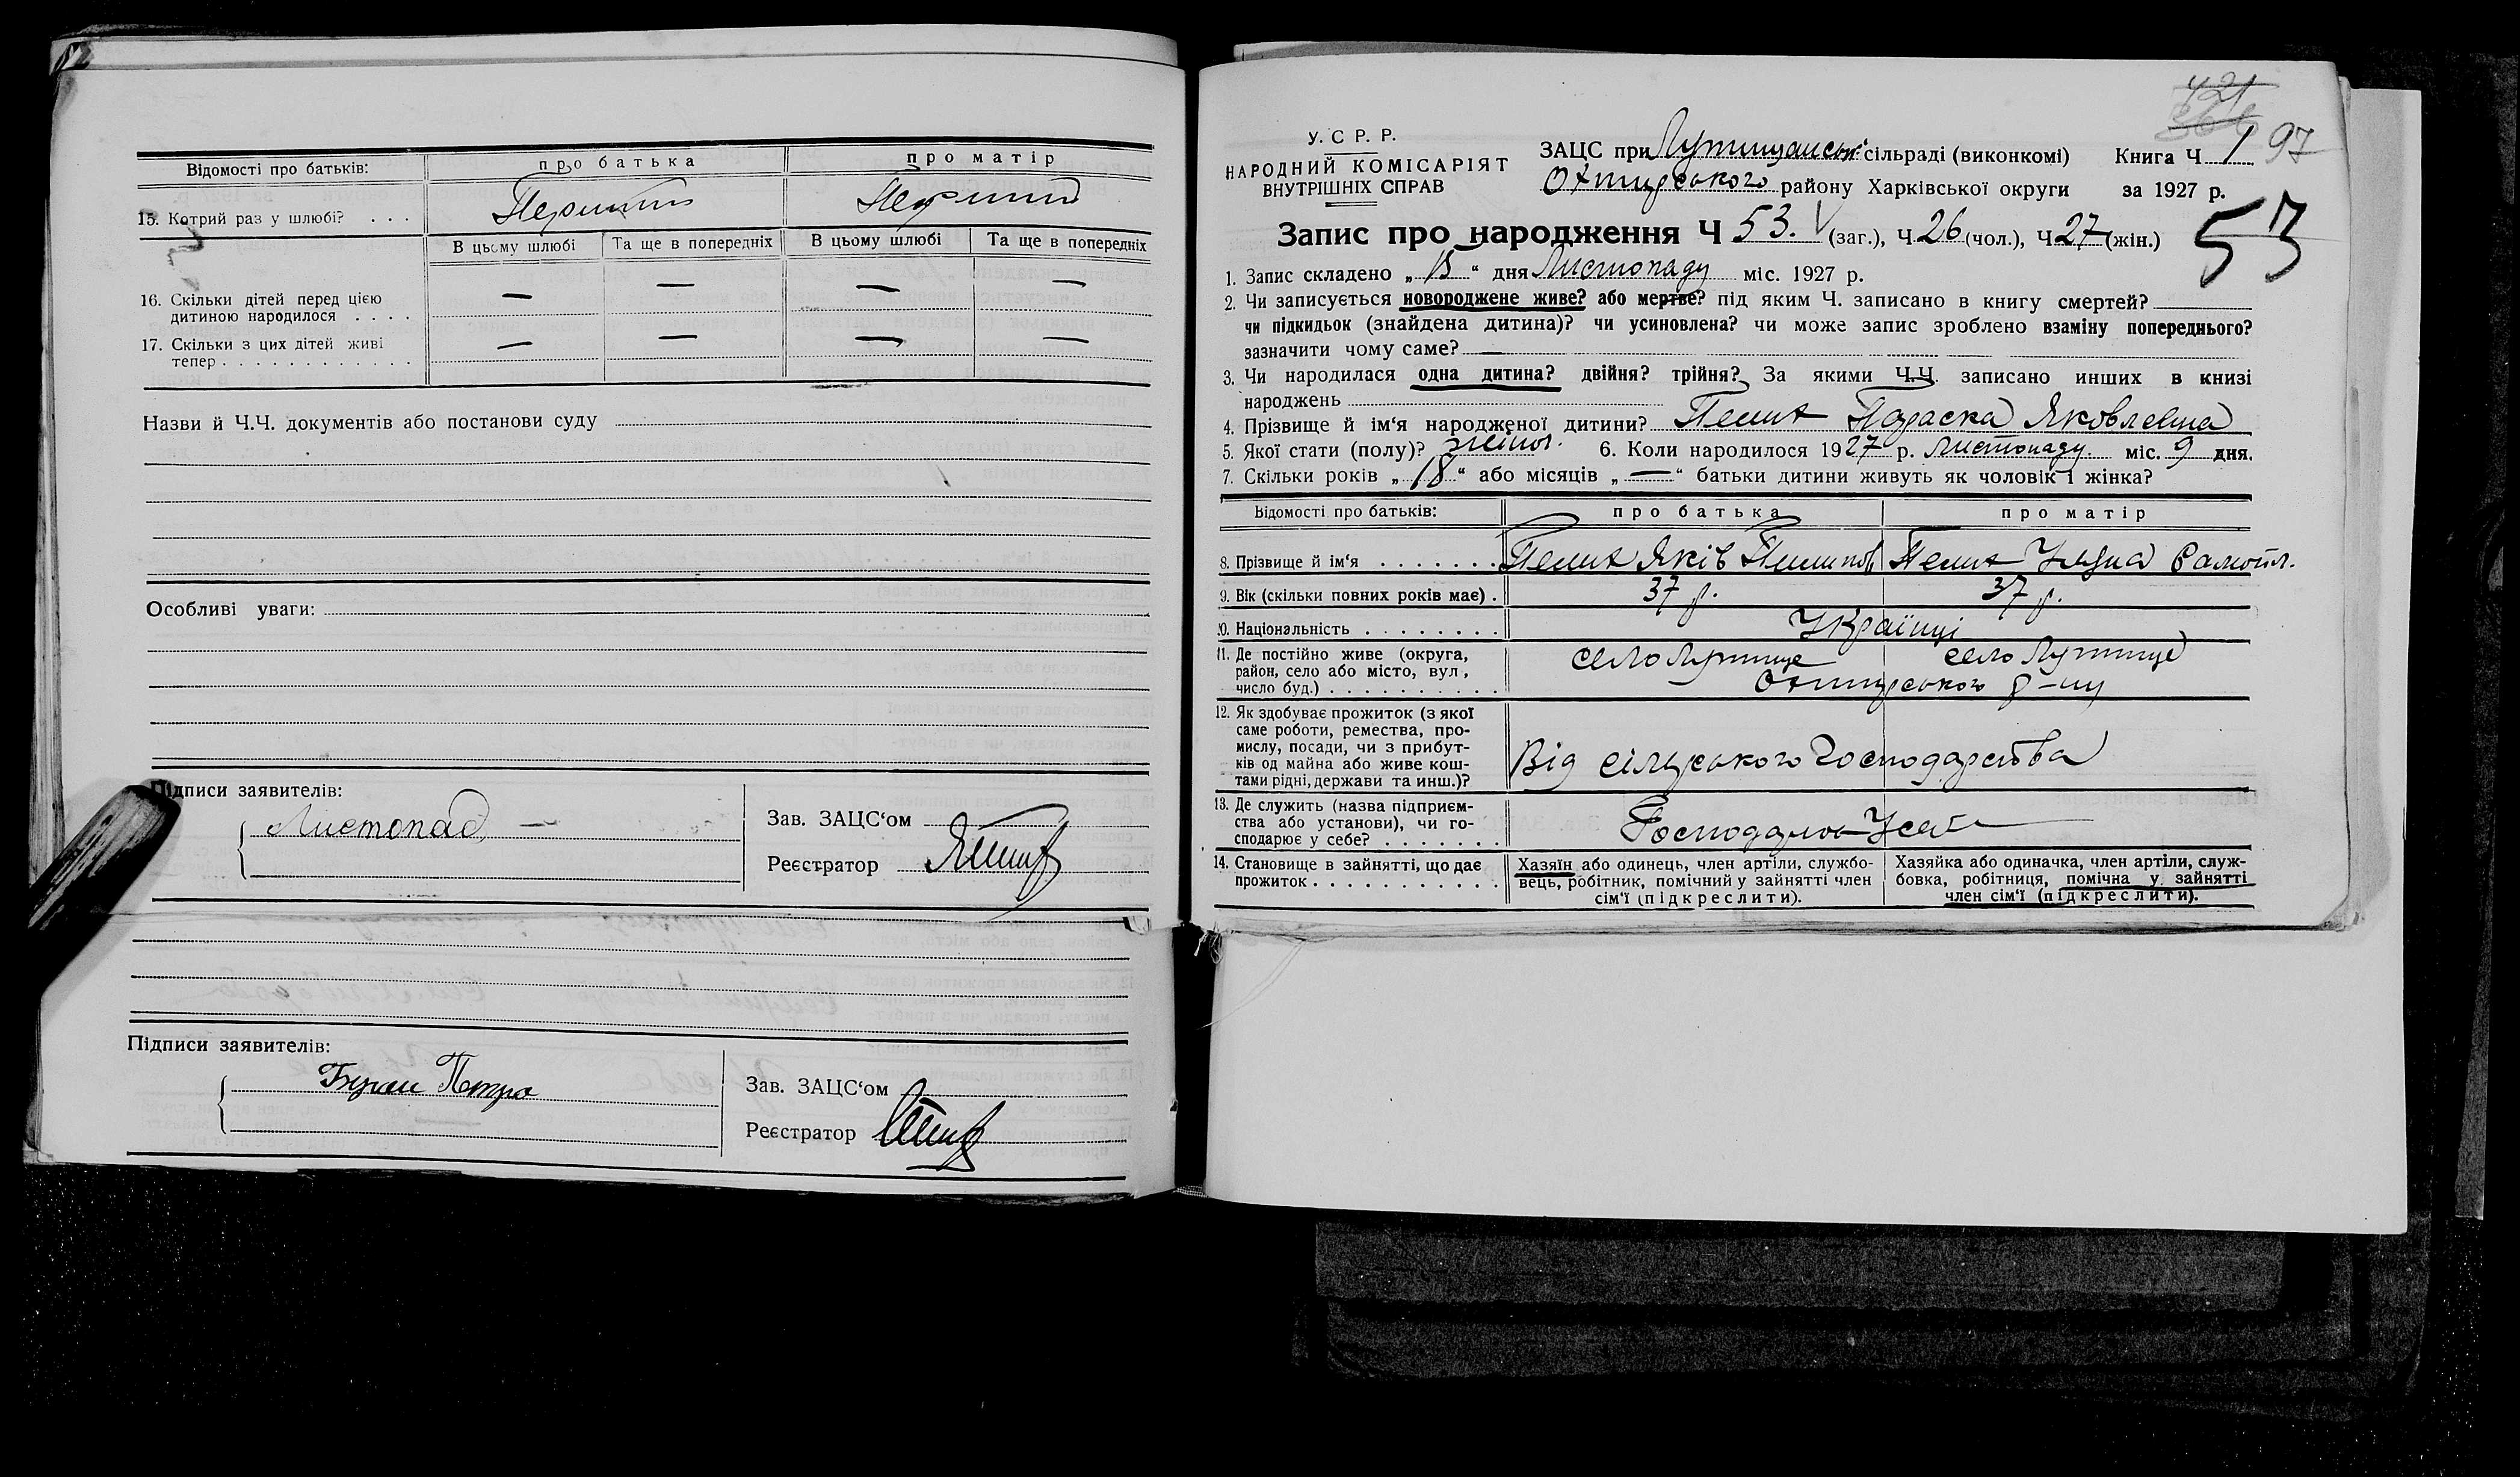 Відомості про батьків: про батька про матір
15. Котрий раз у шлюбі? . . . Перший Перший
В цьому шлюбі Та ще в попередніх В цьому шлюбі Та ще в попередніх
16. Скільки дітей перед цією
дитиною народилося . . . . — — — —
17. Скільки з цих дітей живі
тепер . . . . . . . . . . . . — — — —
Назви й Ч.Ч. документів або постанови суду
Особливі уваги:
Підписи заявителів:
Листопад
Зав. ЗАЦС‘ом
Реєстратор
Підписи заявителів:
Петро
Зав. ЗАЦС‘ом
Реєстратор
421
97
У. С Р. Р.
НАРОДНИЙ КОМІСАРІЯТ
ВНУТРІШНІХ СПРАВ
ЗАЦС при Лутищанськ. сільраді (виконкомі) Книга Ч 1
Охтирського району Харківської округи за 1927 р.
Запис про народження Ч 53. (заг.), Ч 26 (чол.), Ч 27 (жін.)
53
1. Запис складено „ 15 “ дня Листопаду міс. 1927 р.
2. Чи записується новороджене живе? або мертве? під яким Ч. записано в книгу смертей?
чи підкидьок (знайдена дитина)? чи усиновлена? чи може запис зроблено взаміну попереднього?
зазначити чому саме? —
3. Чи народилася одна дитина? двійня? трійня? За якими Ч.Ч. записано инших в книзі
народжень
4. Прізвище й ім‘я народженої дитини? Пелих Параска Яковлевна
5. Якої стати (полу)? жіноч. 6. Коли народилося 1927 р. Листопаду міс. 9 дня.
7. Скільки років „ 18 “ або місяців „ — “ батьки дитини живуть як чоловік і жінка?
Відомості про батьків: про батька про матір
8. Прізвище й ім‘я . . . . . . . Пелих Яків Пилипов Пелих Уляна Самойл.
9. Вік (скільки повних років має) . 37 р. 37 р.
10. Національність . . . . . . . . Українці
11. Де постійно живе (округа,
район, село або місто, вул,
число буд.) . . . . . . . . . . . село Лутище село Лутище
Охтирського р-ну
12. Як здобуває прожиток (з якої
саме роботи, ремества, про-
мислу, посади, чи з прибут-
ків од майна або живе кош-
тами рідні, держави та инш.)?
Від сільського господарства
13. Де служить (назва підприєм-
ства або установи), чи го-
сподарює у себе? . . . . . . .
14. Становище в зайнятті, що дає
прожиток . . . . . . . . . . . .
Хазяїн або одинець, член артіли, службо-
вець, робітник, помічний у зайнятті член
сім‘ї (підкреслити).
Хазяйка або одиначка, член артіли, служ-
бовка, робітниця, помічна у зайнятті
член сім‘ї (підкреслити).